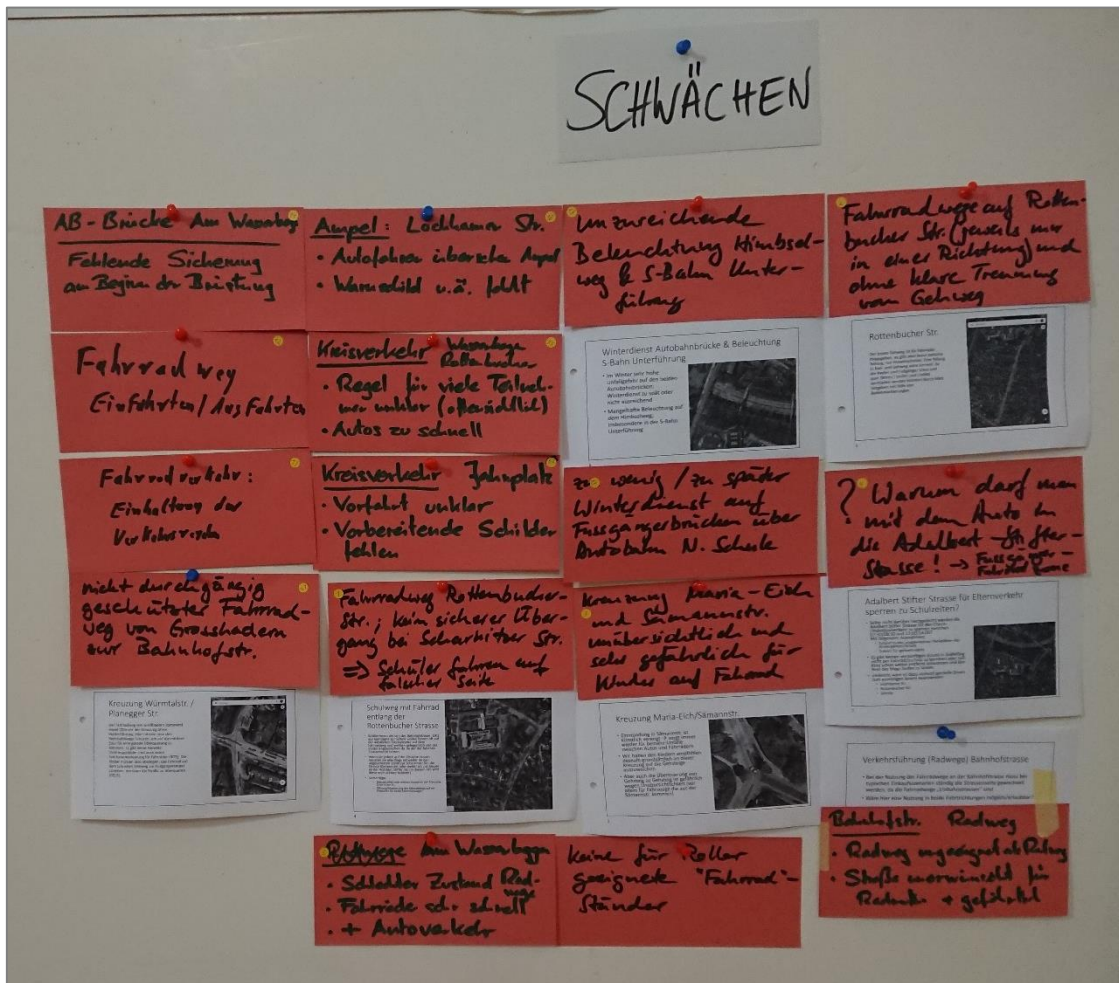 SCHWÄCHEN
AB-Brücke Am Wasserbogen
Fehlende Sicherung
am Beginn der Brüstung
Fahrradweg
Einfahrten/Ausfahrten
Fahrradverkehr:
Einhaltung der
Verkehrsregeln
nicht durchgängig
geschützter Fahrrad-
weg von Grosshadern
zur Bahnhofstr.
Kreuzung Würmtalstr. /
Planegger Str.
Ampel: Lochhamer Str.
• Autofahrer übersehen Ampel
• Warnschild u.ä. fehlt
Kreisverkehr Wasserbogen
Rottenbucher
• Regel für viele Teilneh-
mer unklar (offensichtlich)
• Autos zu schnell
Kreisverkehr Jahnplatz
• Vorfahrt unklar
• Vorbereitende Schilder
fehlen
Fahrradweg Rottenbucher-
Str.; kein sicherer Über-
gang bei Scharnitzer Str.
⇒ Schüler fahren auf
falscher Seite
Schulweg mit Fahrrad
entlang der
Rottenbucher Strasse
am Wasserbogen
• Schlechter Zustand Rad-
wege
• sehr schnell
• + Autoverkehr
Unzureichende
Beleuchtung Himbsel-
weg & S-Bahn Unter-
führung
Winterdienst Autobahnbrücke & Beleuchtung
S-Bahn Unterführung
• Im Winter sehr hohe
Unfallgefahr auf den beiden
Autobahnbrücken.
Winterdienst zu spät oder
nicht ausreichend
• Mangelhafte Beleuchtung auf
dem Himbselweg,
insbesondere in der S-Bahn
Unterführung
zu wenig / zu später
Winterdienst auf
Fussgängerbrücken über
Autobahn N. Schule
Kreuzung Maria-Eich
und Sämannstr.
unübersichtlich und
sehr gefährlich für
Kinder auf Fahrrad
Kreuzung Maria-Eich/Sämannstr.
keine für Roller
geeignete "Fahrrad"-
Ständer
Fahrradwege auf Rotten-
bucher Str. (jeweils nur
in einer Richtung) und
ohne klare Trennung
vom Gehweg
Rottenbucher Str.
? Warum darf man
mit dem Auto in
die Adalbert-Stifter-
Strasse! → Fussgänger-
Fahrrad Zone
Adalbert Stifter Strasse für Elternverkehr
sperren zu Schulzeiten?
Verkehrsführung (Radwege) Bahnhofstrasse
Bahnhofstr. Radweg
• Radweg ungeeignet als Radweg
• Straße unerwünscht für
Radler + gefährlich